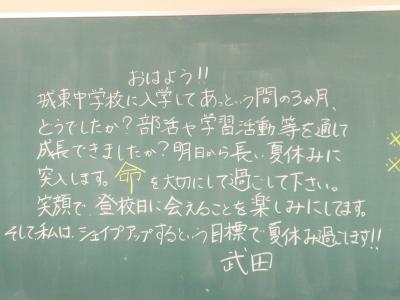 おはよう!!
城東中学校に入学してあっという間の3か月、
どうでしたか?部活や学習活動等を通して
成長できましたか?明日から長い夏休みに
突入します。命を大切にして過ごして下さい。
笑顔で登校日に会えることを楽しみにしてます。
そして私は、シェイプアップするという目標で夏休み過ごします!!
武田
※
※